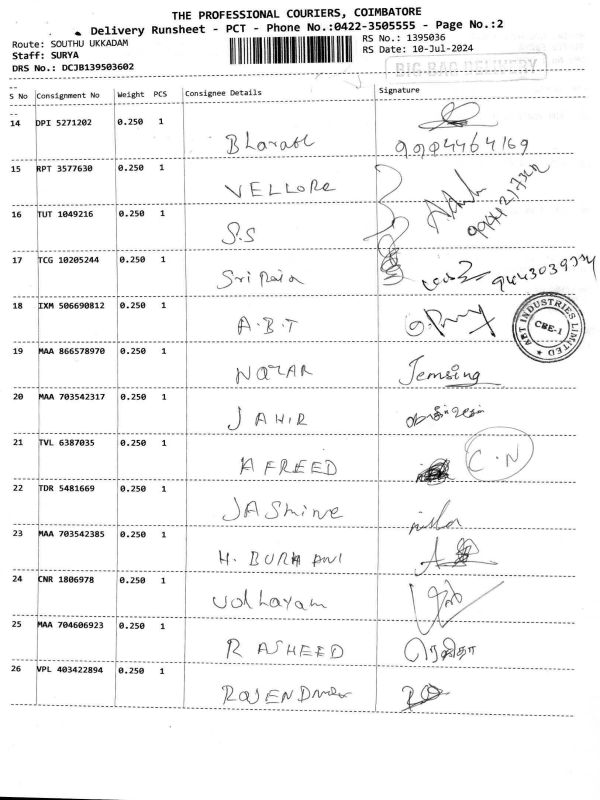 THE PROFESSIONAL COURIERS, COIMBATORE
Delivery Runsheet - PCT - Phone No.:0422-3505555 - Page No.:2
Route: SOUTHU UKKADAM
RS No.: 1395036
Staff: SURYA
RS Date: 10-Jul-2024
DRS No.: DCJB139503602
BIG BAG DELIVERY
S No Consignment No Weight PCS Consignee Details Signature
14 DPI 5271202 0.250 1
Bharath 9994464169
15 RPT 3577630 0.250 1
VELLORE
16 TUT 1049216 0.250 1
S.S
17 TCG 10205244 0.250 1
Sri Raja
18 IXM 506690812 0.250 1
A.B.T
ABT INDUSTRIES LIMITED
CBE-1
19 MAA 866578970 0.250 1
NAZAR Jemsing
20 MAA 703542317 0.250 1
JAHIR
21 TVL 6387035 0.250 1
AFREED C.N
22 TDR 5481669 0.250 1
JAShine
23 MAA 703542385 0.250 1
H. BURHANI
24 CNR 1806978 0.250 1
Udhayam
25 MAA 704606923 0.250 1
RASHEED
26 VPL 403422894 0.250 1